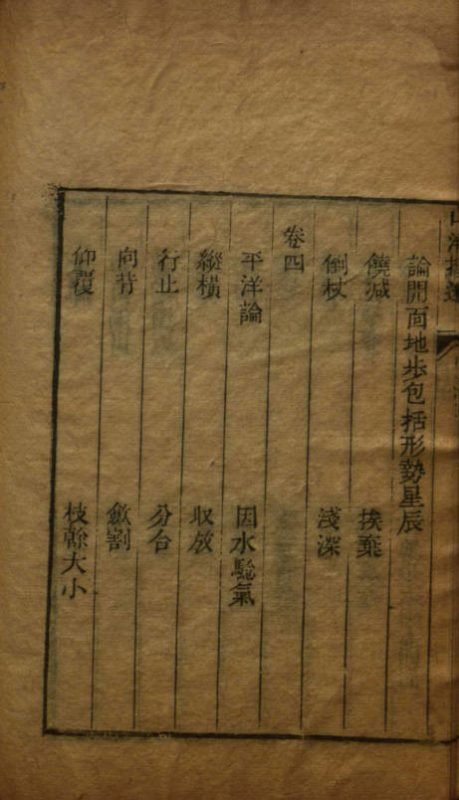 論開面地步包括形勢星辰
饒減 挨棄
倒杖 淺深
卷四
平洋論 因水騐氣
縱橫 収放
行止 分合
向背 斂割
仰覆 枝幹大小